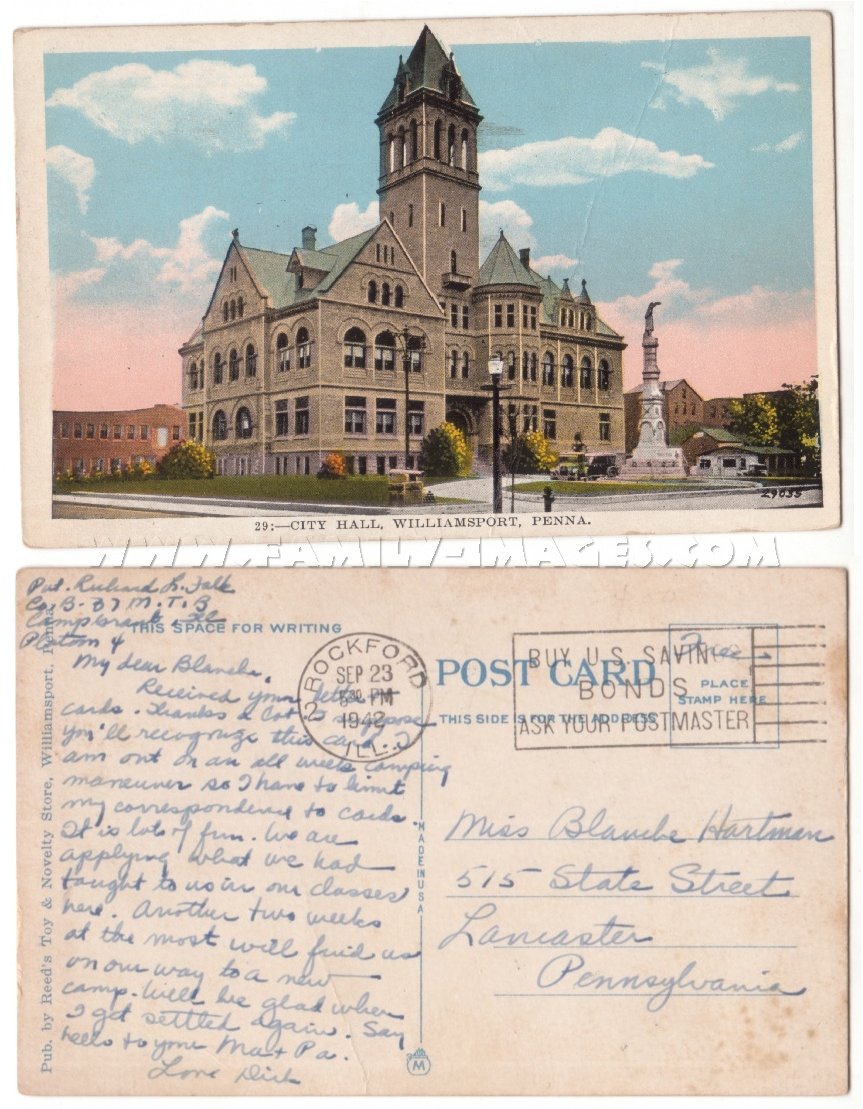 29:—CITY HALL, WILLIAMSPORT, PENNA.
29035
WWW.FAMILY-IMAGES.COM
Pvt. Richard L. Falk
Co. B-27 M.T.B
Camp Grant, Ill
Platoon 4
THIS SPACE FOR WRITING
My dear Blanche,
Received your letter &
cards. Thanks a lot. I suppose
you'll recognize this card. I
am out on an all weeks camping
maneuver so I have to limit
my correspondence to cards.
It is lots of fun. We are
applying what we had
taught to us in our classes
here. Another two weeks
at the most will find us
on our way to a new
camp. Will be glad when
I get settled again. Say
hello to your Ma + Pa.
Love Dick
Pub. by Reed's Toy & Novelty Store, Williamsport, Penna.
ROCKFORD
2
SEP 23
530 PM
1942
ILL.
BUY U.S. SAVIN
BONDS
ASK YOUR POSTMASTER
Free
POST CARD
THIS SIDE IS FOR THE ADDRESS
PLACE
STAMP HERE
MADE IN USA
M
Miss Blanche Hartman
515 State Street
Lancaster
Pennsylvania